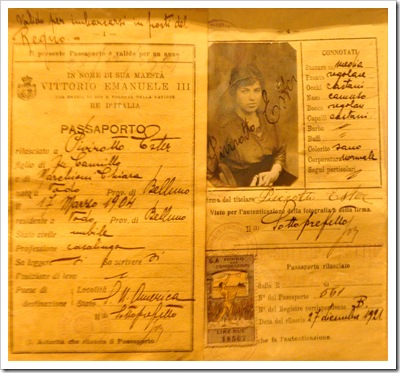 Valido per imbarcarsi in porti del
Regno
Il presente Passaporto è valido per un anno
IN NOME DI SUA MAESTÀ
VITTORIO EMANUELE III
PER GRAZIA DI DIO E VOLONTÀ DELLA NAZIONE
RE D'ITALIA
PASSAPORTO
rilasciato a Ester
figlio di fu Camillo
e di Marchioni Chiara
nato a Prov. di Belluno
il 17 Marzo 1904
residente a Prov. di Belluno
Stato civile nubile
Professione casalinga
Sa leggere sì Sa scrivere sì
Posizione di leva
Paese di destinazione Località
S. U. America
Il Sottoprefetto
Autorità che rilascia il Passaporto
CONNOTATI
Statura media
Fronte regolare
Occhi castani
Naso
Bocca regolare
Capelli castani
Barba
Baffi
Colorito sano
Corporatura normale
Segni particolari
Ester
Firma del titolare Ester
Visto per l'autenticazione della fotografia e della firma
Il Sottoprefetto
Passaporto rilasciato
dalla R.
N° del Passaporto 661
N° del Registro corrispondente
Data del rilascio 27 dicembre 1921
che fa l'autenticazione.
LIRE DUE